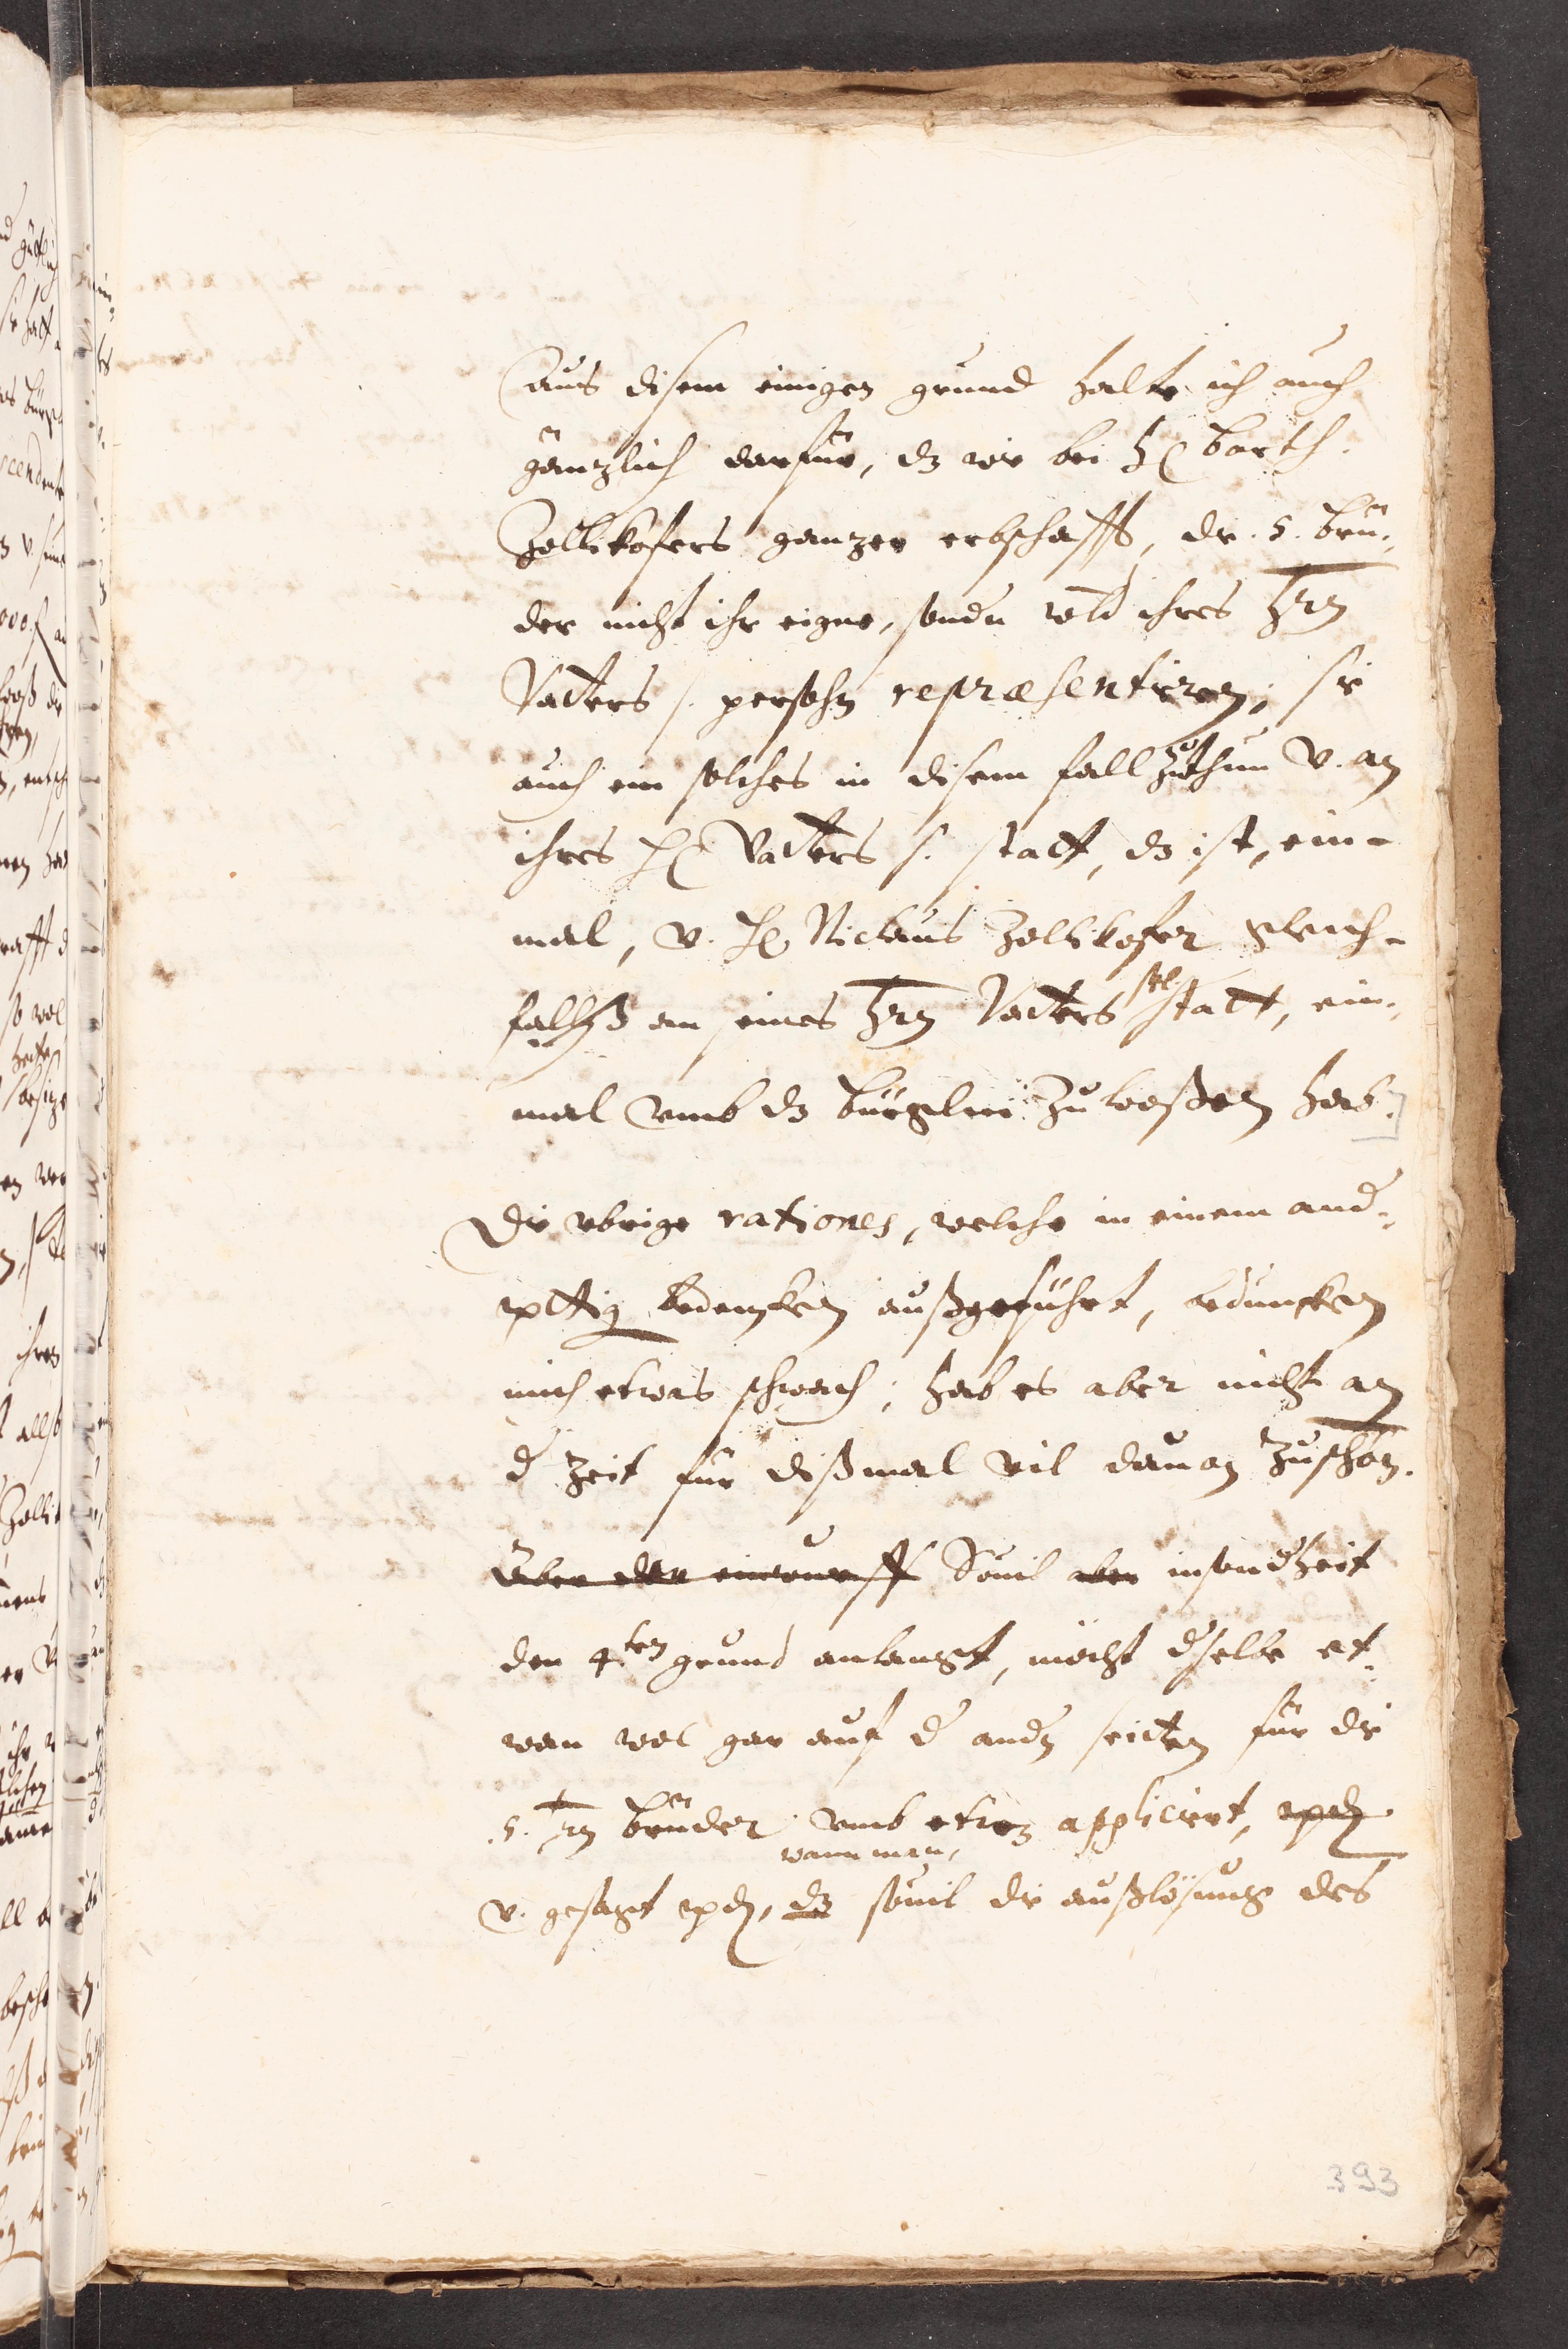 Aus disem einigen grund halte ich auch
gänzlich darfür, dz wie bei H. Barth.
Zollikofers ganzer erbschafft, die .5. brü-
der nicht ihr eigne, sondn ihres Hrn
Vatters s. persohn repræsentiren, sie
auch ein solches in disem fall zuthun v. an
ihres H. Vatters s. statt, dz ist, ein-
mal, v. H. Niclaus Zollikofer gleich-
fahlß an seines Hrn Vatters sel. statt, ein-
mal umb dz bürglein zu looßen hab.
Die übrige rationes, welche in einem and-
bedencken außgeführt, beduncken
mich etwas schwach; hab es aber nicht an
d Zeit für dißmal vil davon zuschön.
Über den einwurff Sovil aber insondheit
den 4ten grund anlangt, möcht dselbe et-
wan wol gar auf d andn seitten für die
.5. Hn brüder umb etwz applicirt,
wann man,
v. gesagt dz sovil die außlösung des
393